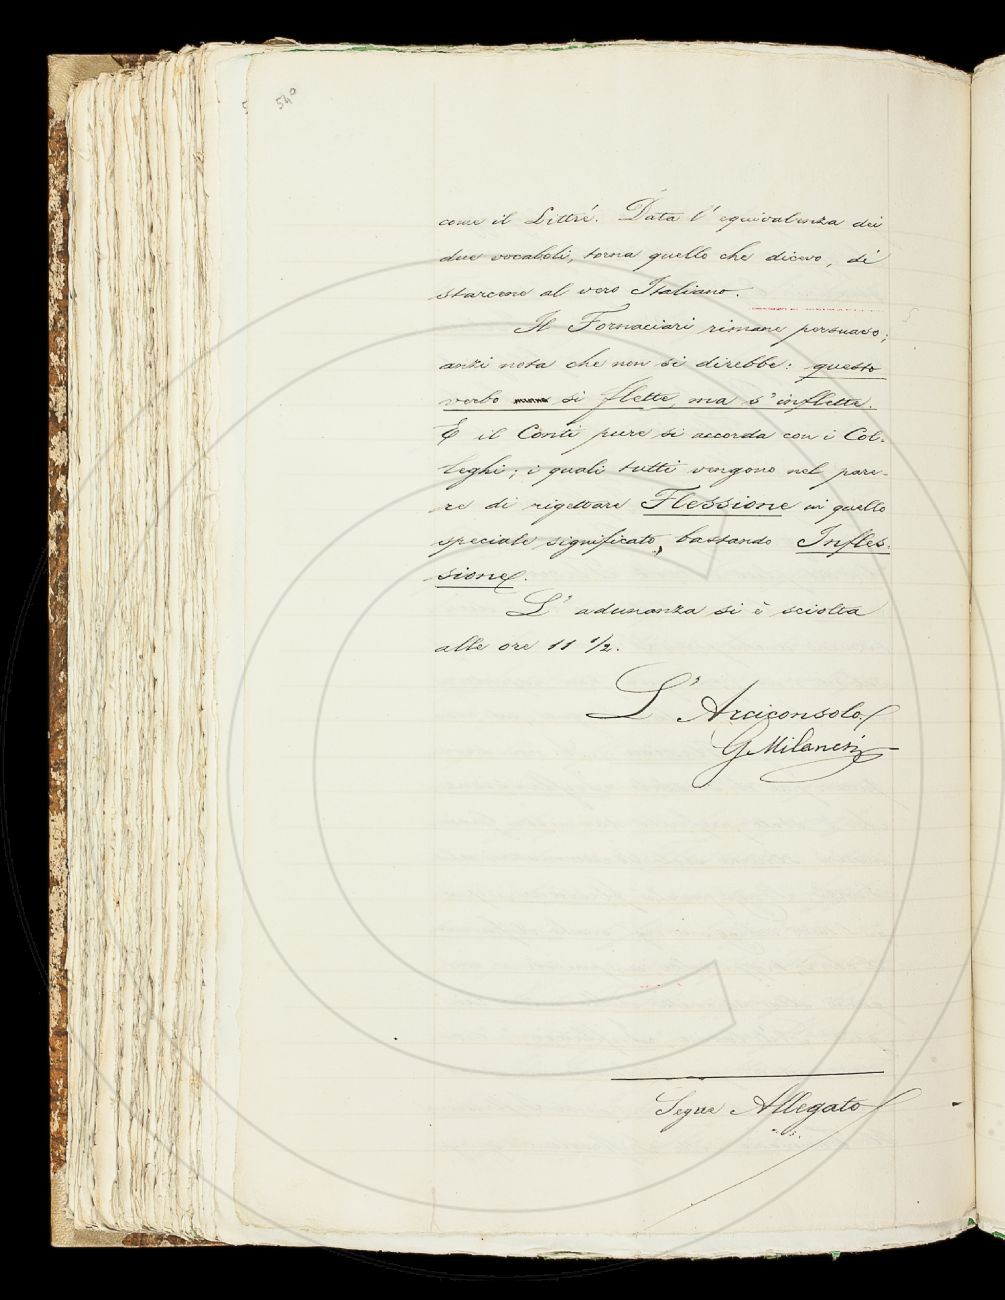 540
come il Littré. Data l'equivalenza dei
due vocaboli, torna quello che dicevo, di
starcene al vero Italiano.
Il Fornaciari rimane persuaso;
anzi nota che non si direbbe: questo
verbo si flette, ma s'inflette.
E il Conti pure si accorda con i Col-
leghi; i quali tutti vengono nel pare-
re di rigettare Flessione in quello
speciale significato, bastando Infles-
sione.
L'adunanza si è sciolta
alle ore 11 1/2.
L'Arciconsolo
G Milanesi
Segue Allegato